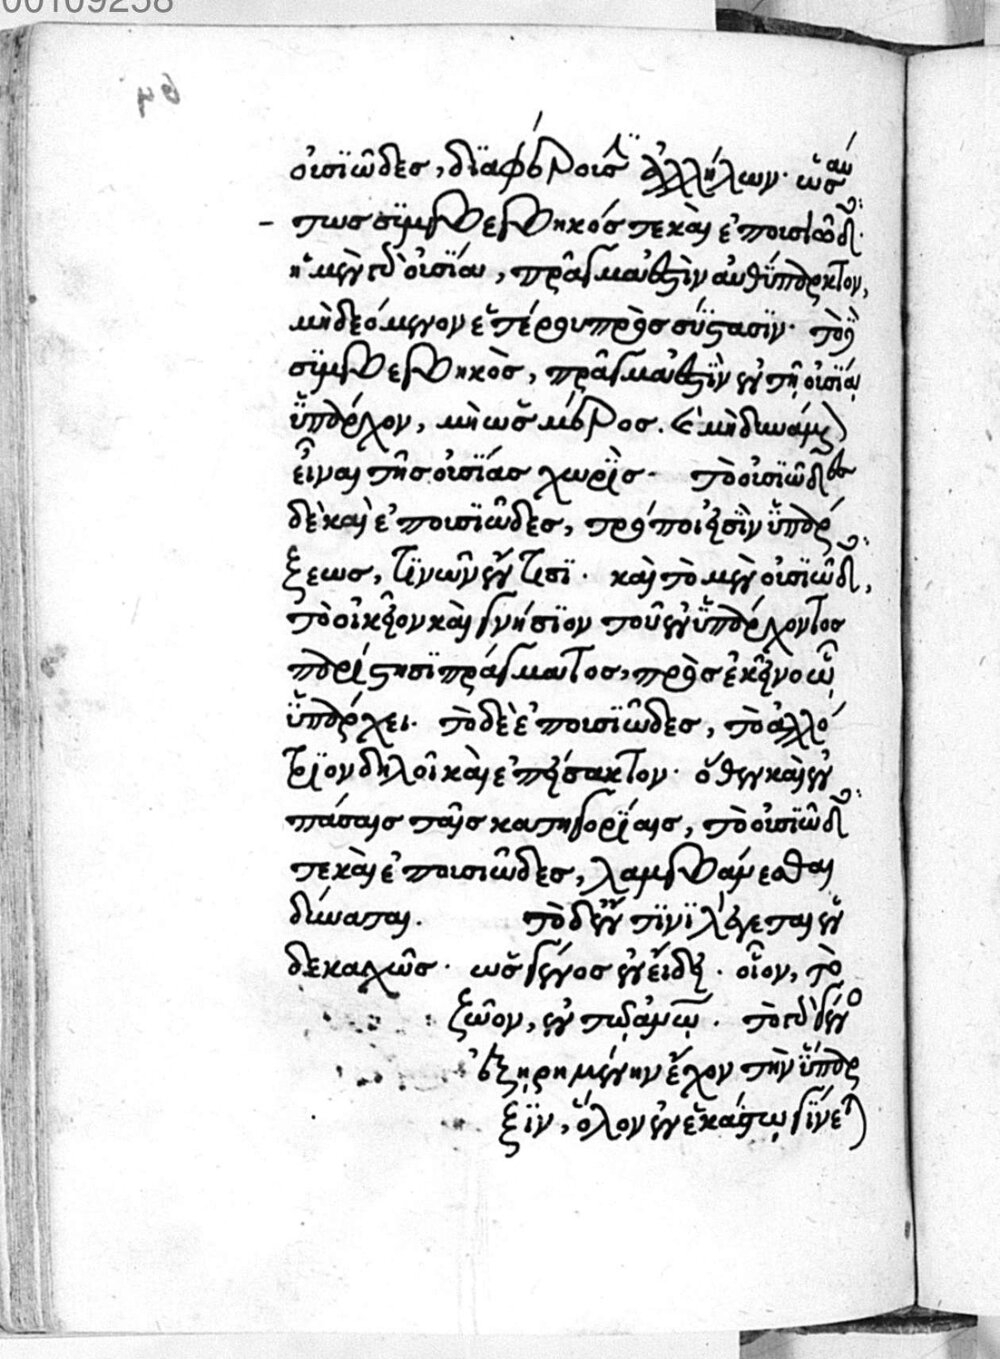 00109258
64
οὐσιῶδες, διαφέρουσιν ἀλλήλων. ὡσαύ
τως συμβεβηκός τε καὶ ἐπουσιῶδες.
ἡ μὲν γὰρ οὐσία, πρᾶγμα ἐστὶν αὐθύπαρκτον,
μὴ δεόμενον ἑτέρου πρὸς σύστασιν. τὸ δὲ
συμβεβηκὸς, πρᾶγμα ἐστὶν ἐν τῇ οὐσίᾳ
ὑπάρχον, μὴ ὡς μέρος. καὶ μὴ δυνάμενον
εἶναι τῆς οὐσίας χωρίς. τὸ οὐσιῶδες
δὲ καὶ ἐπουσιῶδες, τρόποι εἰσὶν ὑπάρ
ξεως, τινῶν ἔν τισι. καὶ τὸ μὲν οὐσιῶδες,
τὸ οἰκεῖον καὶ γνήσιον τοῦ ἐνυπάρχοντος
παρίστησι πράγματος, πρὸς ἐκεῖνο ᾧ
ὑπάρχει. τὸ δὲ ἐπουσιῶδες, τὸ ἀλλό
τριον δηλοῖ καὶ ἐπείσακτον. ὅθεν καὶ ἐν
πάσαις ταῖς κατηγορίαις, τὸ οὐσιῶδες
τε καὶ ἐπουσιῶδες, λαμβάνεσθαι
δύναται. τὸ δὲ ἔν τινι λέγεται ἑν
δεκαχῶς. ὡς γένος ἐν εἴδει. οἷον, τὸ
ζῶον, ἐν τῷ ἀνῳ. τὸ γὰρ γένος
ἐξῃρημένην ἔχον τὴν ὕπαρ
ξιν, ὅλον ἐν ἑκάστῳ γίνεται